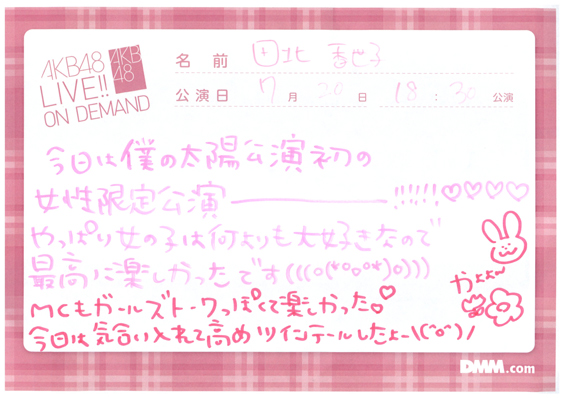 AKB48
LIVE!!
ON DEMAND
AKB
48
名前 田北 香世子
公演日 7月20日 18:30 公演
今日は僕の太陽公演初の
女性限定公演ーーー!!!!!♡♡♡♡
やっぱり女の子は何よりも大好きなので
最高に楽しかったです(((o(*°▽°*)o)))
MCもガールズトークっぽくて楽しかった♡
今日は気合い入れて高めツインテールしたよー\(^o^)/
かよよ~
DMM.com